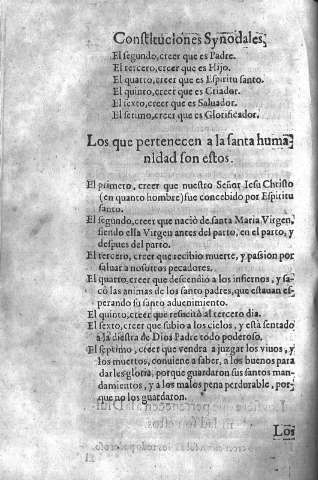 Constituciones Synodales,
El segundo, creer que es Padre.
El tercero, creer que es Hijo.
El quarto, creer que es Espiritu santo.
El quinto, creer que es Criador.
El sexto, creer que es Saluador.
El septimo, creer que es Glorificador.
Los que pertenecen a la santa huma-
nidad son estos.
El primero, creer que nuestro Señor Iesu Christo
(en quanto hombre) fue concebido por Espiritu
santo.
El segundo, creer que naciò de santa Maria Virgen,
siendo ella Virgen antes del parto, en el parto, y
despues del parto.
El tercero, creer que recibio muerte, y passion por
saluar a nosotros pecadores.
El quarto, creer que descendiò a los infiernos, y sa-
cò las animas de los santos padres, que estauan es-
perando su santo aduenimiento.
El quinto, creer que resucitò al tercero dia.
El sexto, creer que subio a los cielos, y està sentado
a la diestra de Dios Padre todo poderoso.
El septimo, creer que vendra a juzgar los viuos, y
los muertos, conuiene a saber, a los buenos para
darles gloria, porque guardaron sus santos man-
damientos, y a los malos pena perdurable, por-
que no los guardaron.
Los